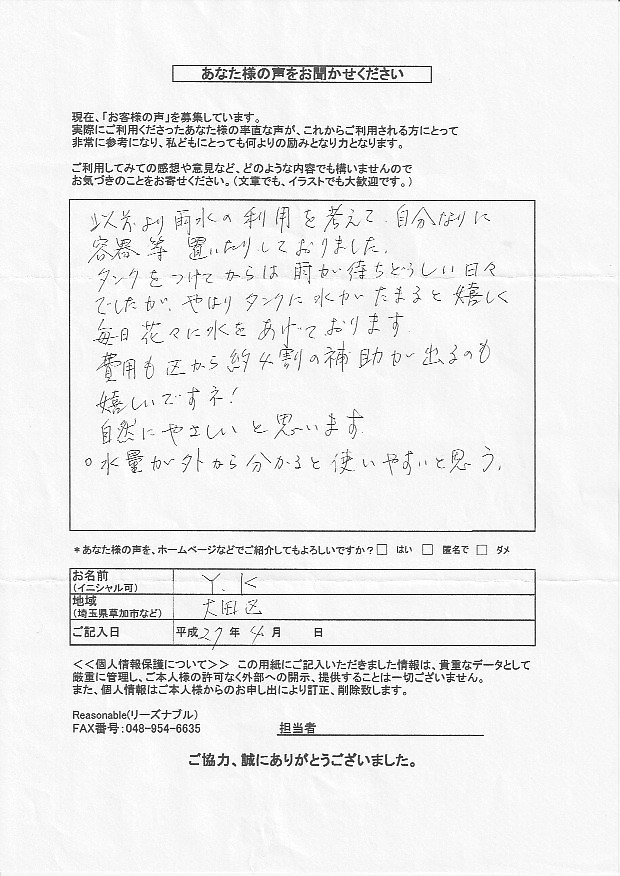 あなた様の声をお聞かせください
現在、「お客様の声」を募集しています。
実際にご利用くださったあなた様の率直な声が、これからご利用される方にとって
非常に参考になり、私どもにとっても何よりの励みとなり力となります。
ご利用してみての感想や意見など、どのような内容でも構いませんので
お気づきのことをお寄せください。（文章でも、イラストでも大歓迎です。）
以前より雨水の利用を考えて、自分なりに
容器等置いたりしておりました。
タンクをつけてからは雨が待ちどうしい日々
でしたが、やはりタンクに水がたまると嬉しく
毎日花々に水をあげております。
費用も区から約4割の補助が出るのも
嬉しいですネ!
自然にやさしいと思います。
○水量が外から分かると使いやすいと思う。
*あなた様の声を、ホームページなどでご紹介してもよろしいですか?□ はい □ 匿名で □ ダメ
お名前
(イニシャル可) Y.K
地域
(埼玉県草加市など) 大田区
ご記入日 平成27年4月 日
<<個人情報保護について>> この用紙にご記入いただきました情報は、貴重なデータとして
厳重に管理し、ご本人様の許可なく外部への開示、提供することは一切ございません。
また、個人情報はご本人様からのお申し出により訂正、削除致します。
Reasonable(リーズナブル)
FAX番号:048-954-6635 担当者
ご協力、誠にありがとうございました。